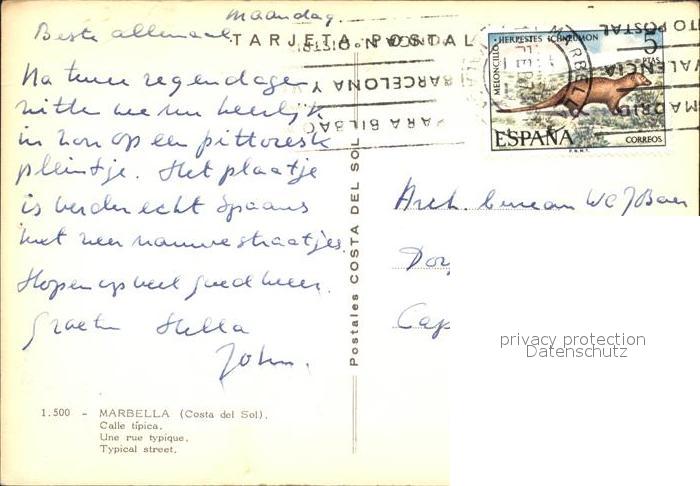 Maandag.
Beste allemaal
TARJETA POSTAL
Na twee regendagen
zitten we nu heerlijk
in zon op een pittoresk
pleintje. Het plaatje
is verder echt Spaans
met zeer nauwe straatjes.
Hopen op veel goed weer.
Groeten Hella
John.
1.500 - MARBELLA (Costa del Sol).
Calle típica.
Une rue typique.
Typical street.
Postales COSTA DEL SOL
MELONCILLO · HERPESTES ICHNEUMON
5
PTAS
ESPAÑA
CORREOS
F.N.M.T.
MARBELLA
PARA BILBAO
BARCELONA Y
MADRID
VALENCIA
POSTAL
Arch. bureau WC J Baer
Cap
privacy protection
Datenschutz